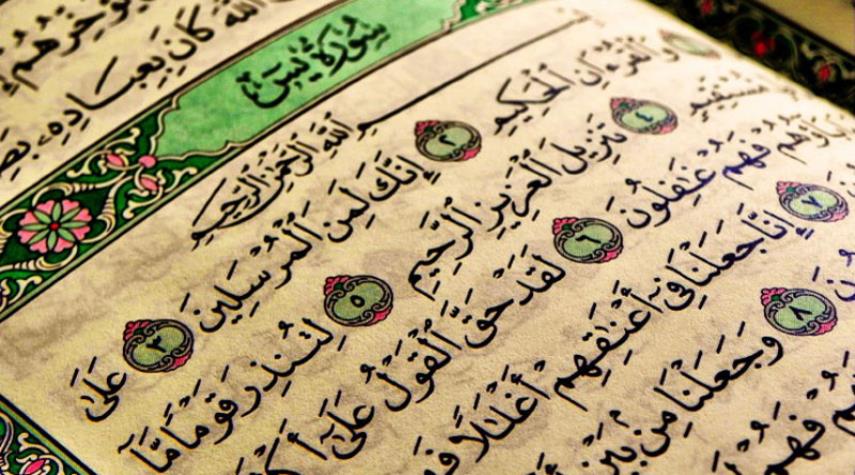 كَانَ بِعِبَادِهِۦ
سُورَةُ يسٓ
بِسْمِ ٱللَّهِ ٱلرَّحْمَٰنِ ٱلرَّحِيمِ
وَٱلْقُرْءَانِ ٱلْحَكِيمِ ٢ إِنَّكَ لَمِنَ ٱلْمُرْسَلِينَ ٣ عَلَىٰ
مُّسْتَقِيمٍ ٤ تَنزِيلَ ٱلْعَزِيزِ ٱلرَّحِيمِ ٥ لِتُنذِرَ قَوْمًا مَّآ
فَهُمْ غَٰفِلُونَ ٦ لَقَدْ حَقَّ ٱلْقَوْلُ عَلَىٰٓ
٧ إِنَّا جَعَلْنَا فِىٓ أَعْنَٰقِهِمْ أَغْلَٰلًا
٨ وَجَعَلْنَا مِنۢ بَيْنِ